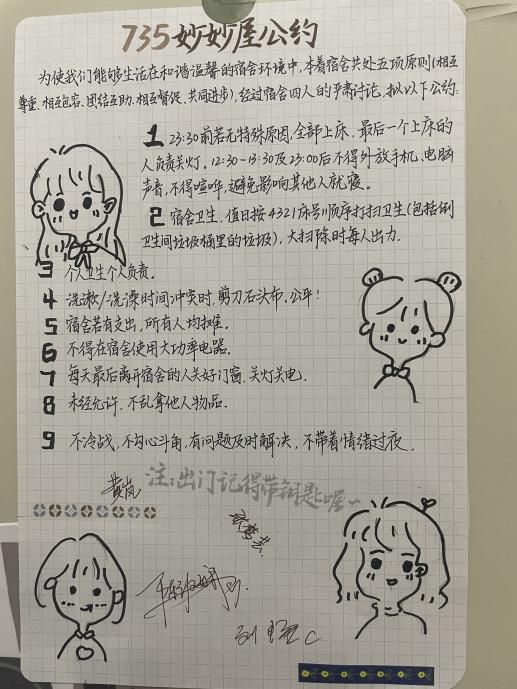 735妙妙屋公约
为使我们能够生活在和谐温馨的宿舍环境中,本着宿舍共处五项原则(相互
尊重、相互包容、团结互助、相互督促、共同进步),经过宿舍四人的严肃讨论,拟以下公约:
1 23:30前若无特殊原因,全部上床,最后一个上床的
人负责关灯。12:30-13:30及23:00后不得外放手机、电脑
声音,不得喧哗,避免影响其他人就寝。
2 宿舍卫生,值日按4321床号顺序打扫卫生(包括倒
卫生间垃圾桶里的垃圾),大扫除时每人出力.
3 个人卫生个人负责.
4 洗漱/洗澡时间冲突时,剪刀石头布.公平!
5 宿舍若有支出,所有人均摊.
6 不得在宿舍使用大功率电器.
7 每天最后离开宿舍的人关好门窗,关灯关电.
8 未经允许,不乱拿他人物品.
9 不冷战,不勾心斗角,有问题及时解决,不带着情绪过夜.
注:出门记得带钥匙喔~
黄岚